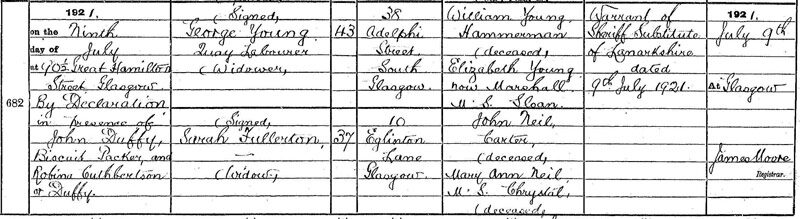 682
1921.
on the Ninth
day of July
at 40½ Great Hamilton
Street, Glasgow
By Declaration
in presence of
John Duffy,
Biscuit Packer, and
Robina Cuthbertson
or Duffy.
(Signed,
George Young
Quay Labourer
(Widower,
(Signed,
Sarah Fullerton,
—
(Widow,
43
37
38
Adelphi
Street,
South
Glasgow.
10
Eglinton
Lane
Glasgow.
William Young,
Hammerman
(deceased,
Elizabeth Young
now Marshall
M. S. Sloan.
John Neil,
Carter,
(deceased,
Mary Ann Neil,
M. S. Chrystal,
(deceased,
Warrant of
Sheriff Substitute
of Lanarkshire
dated
9th July 1921.
1921.
July 9th
At Glasgow
James Moore
Registrar.